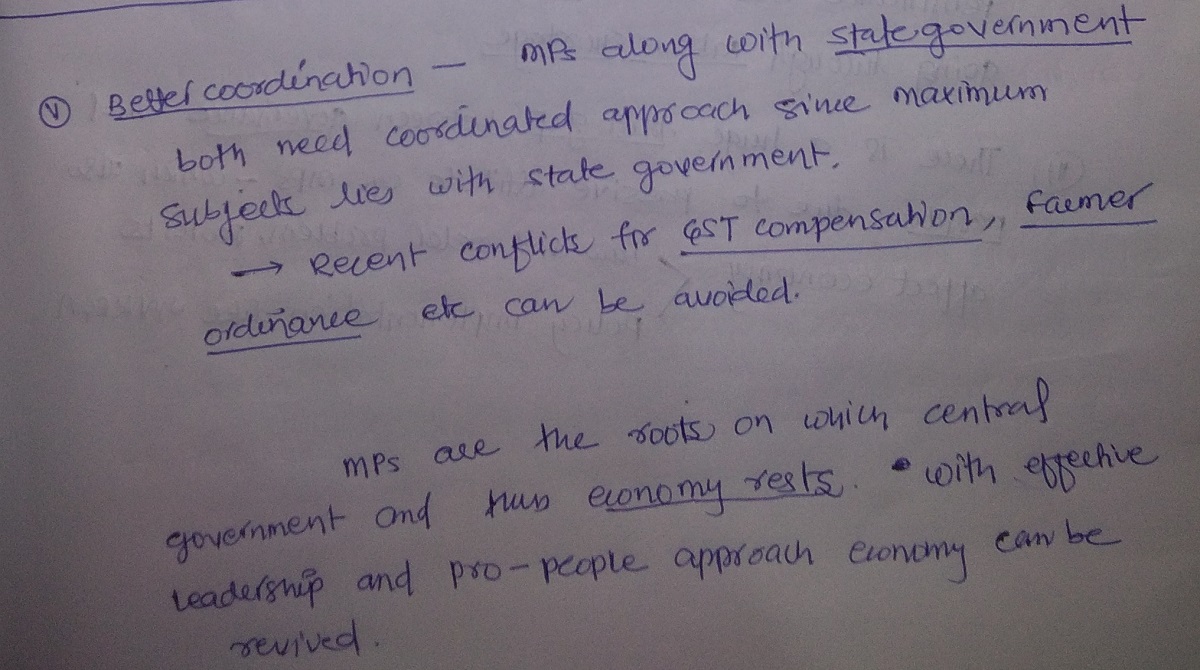 (V) Better coordination — MPs along with state government
both need coordinated approach since maximum
subjects lies with state government.
→ Recent conflicts for GST compensation, Farmer
ordinance etc can be avoided.
MPs are the roots on which central
government and thus economy rests. with effective
leadership and pro-people approach economy can be
revived.